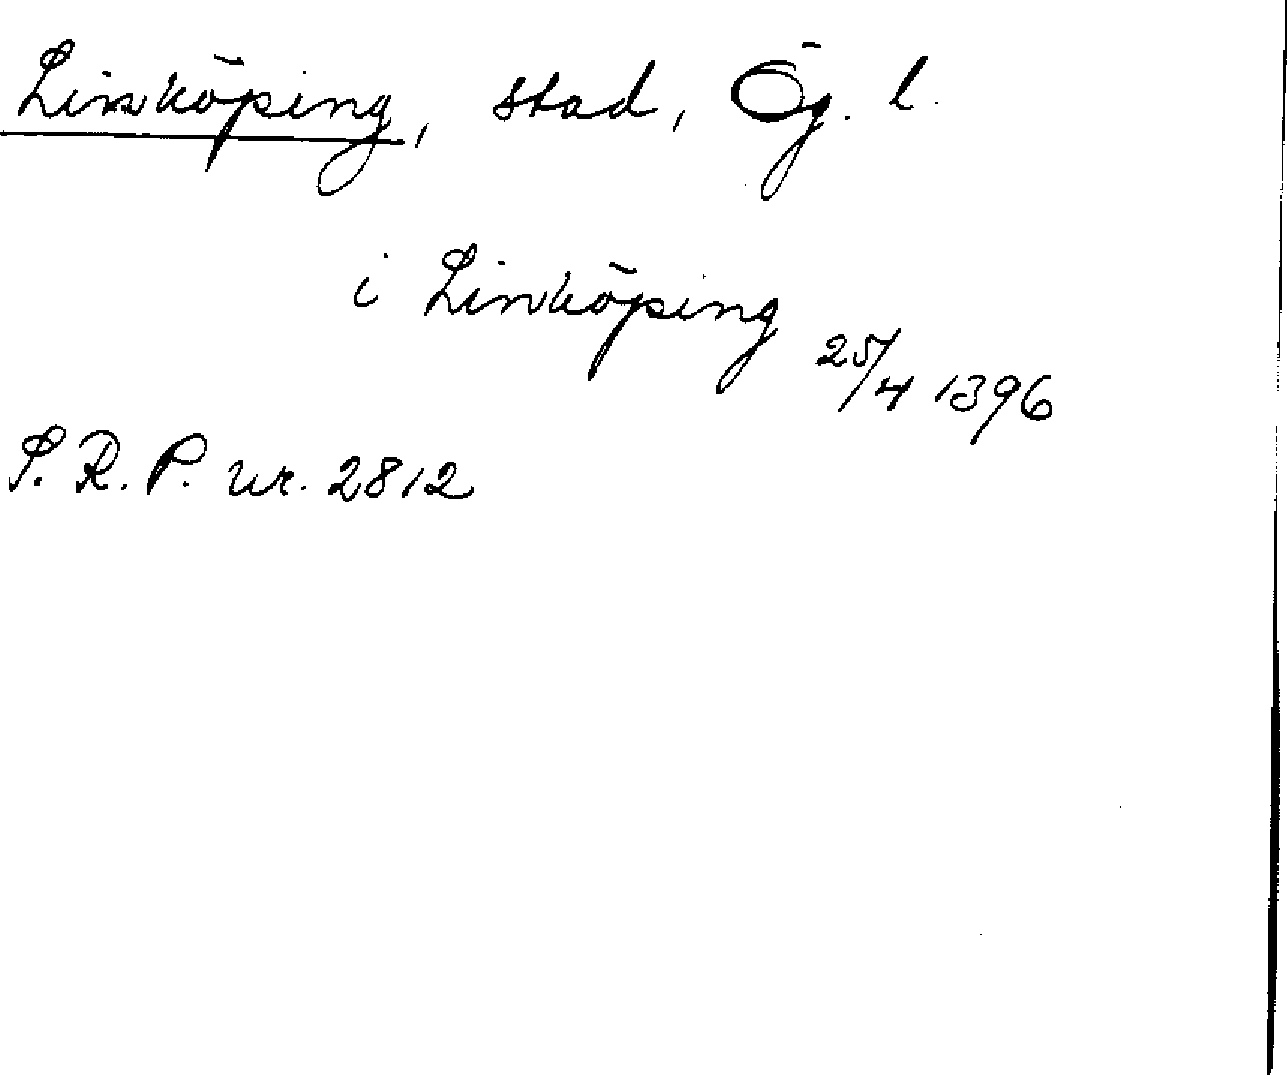 Linköping, stad, Ög. l.
i Linköping 25/4 1396
S. R. P. nr. 2812